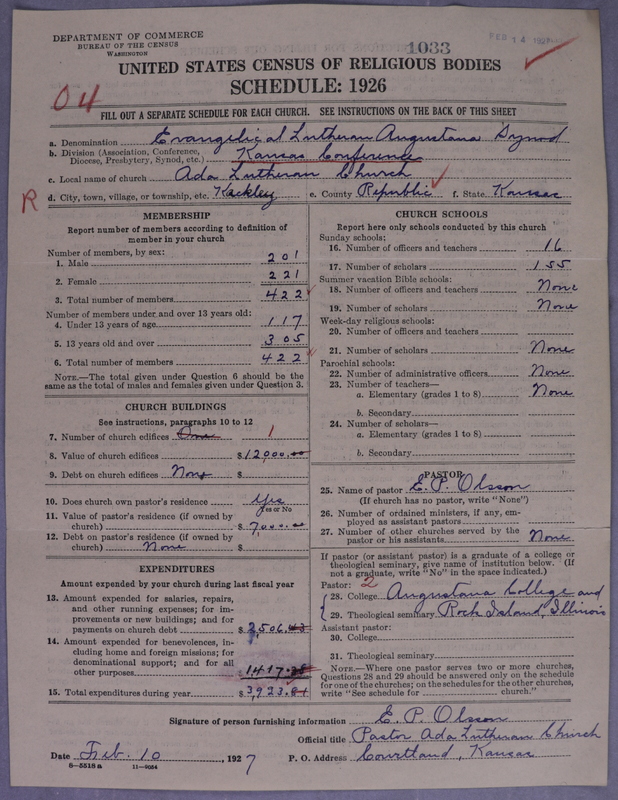 DEPARTMENT OF COMMERCE
BUREAU OF THE CENSUS
WASHINGTON
1033
FEB 14 1927
UNITED STATES CENSUS OF RELIGIOUS BODIES
SCHEDULE: 1926
04
FILL OUT A SEPARATE SCHEDULE FOR EACH CHURCH. SEE INSTRUCTIONS ON THE BACK OF THIS SHEET
a. Denomination Evangelical Lutheran Augustana Synod
b. Division (Association, Conference, Diocese, Presbytery, Synod, etc.) Kansas Conference
c. Local name of church Ada Lutheran Church
R
d. City, town, village, or township, etc. Kackley e. County Republic f. State Kansas
MEMBERSHIP
Report number of members according to definition of
member in your church
Number of members, by sex:
1. Male 201
2. Female 221
3. Total number of members 422
Number of members under and over 13 years old:
4. Under 13 years of age 117
5. 13 years old and over 305
6. Total number of members 422
NOTE.—The total given under Question 6 should be
same as the total of males and females given under Question 3.
CHURCH BUILDINGS
See instructions, paragraphs 10 to 12
7. Number of church edifices One 1
8. Value of church edifices $12000.00
9. Debt on church edifices None $
10. Does church own pastor's residence Yes
Yes or No
11. Value of pastor's residence (if owned by
church) $7,000.00
12. Debt on pastor's residence (if owned by
church) None $
EXPENDITURES
Amount expended by your church during last fiscal year
13. Amount expended for salaries, repairs,
and other running expenses; for im-
provements or new buildings; and for
payments on church debt $2,506.43
14. Amount expended for benevolences, in-
cluding home and foreign missions; for
denominational support; and for all
other purposes 1417.38
15. Total expenditures during year $3,923.81
CHURCH SCHOOLS
Report here only schools conducted by this church
Sunday schools:
16. Number of officers and teachers 16
17. Number of scholars 155
Summer vacation Bible schools:
18. Number of officers and teachers None
19. Number of scholars None
Week-day religious schools:
20. Number of officers and teachers
21. Number of scholars None
Parochial schools:
22. Number of administrative officers None
23. Number of teachers—
a. Elementary (grades 1 to 8) None
b. Secondary
24. Number of scholars—
a. Elementary (grades 1 to 8)
b. Secondary
PASTOR
25. Name of pastor E. P. Olsson
(If church has no pastor, write "None")
26. Number of ordained ministers, if any, em-
ployed as assistant pastors
27. Number of other churches served by the
pastor or his assistants None
If pastor (or assistant pastor) is a graduate of a college or
theological seminary, give name of institution below. (If
not a graduate, write "No" in the space indicated.)
Pastor: 2
28. College Augustana College and
29. Theological seminary Rock Island, Illinois
Assistant pastor:
30. College
31. Theological seminary
NOTE.—Where one pastor serves two or more churches,
Questions 28 and 29 should be answered only on the schedule
for one of the churches; on the schedules for the other churches,
write "See schedule for church."
Signature of person furnishing information E. P. Olsson
Official title Pastor Ada Lutheran Church
Date Feb. 10, 1927 P. O. Address Courtland, Kansas
8—5518 a 11—9054